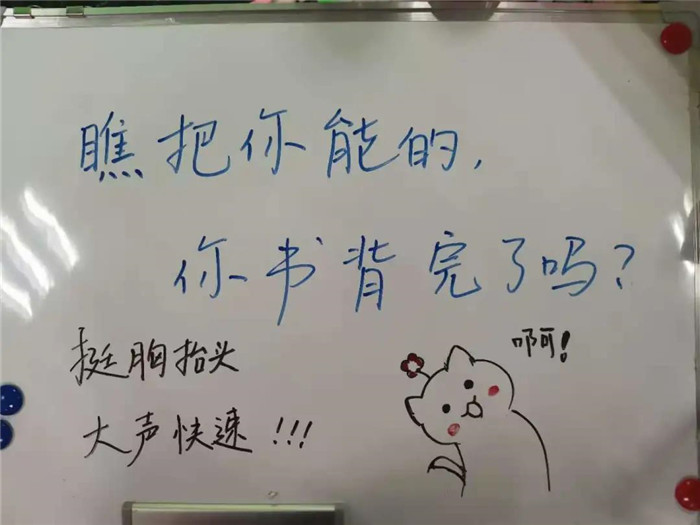 瞧把你能的,
你书背完了吗?
挺胸抬头
大声快速!!!
啊!